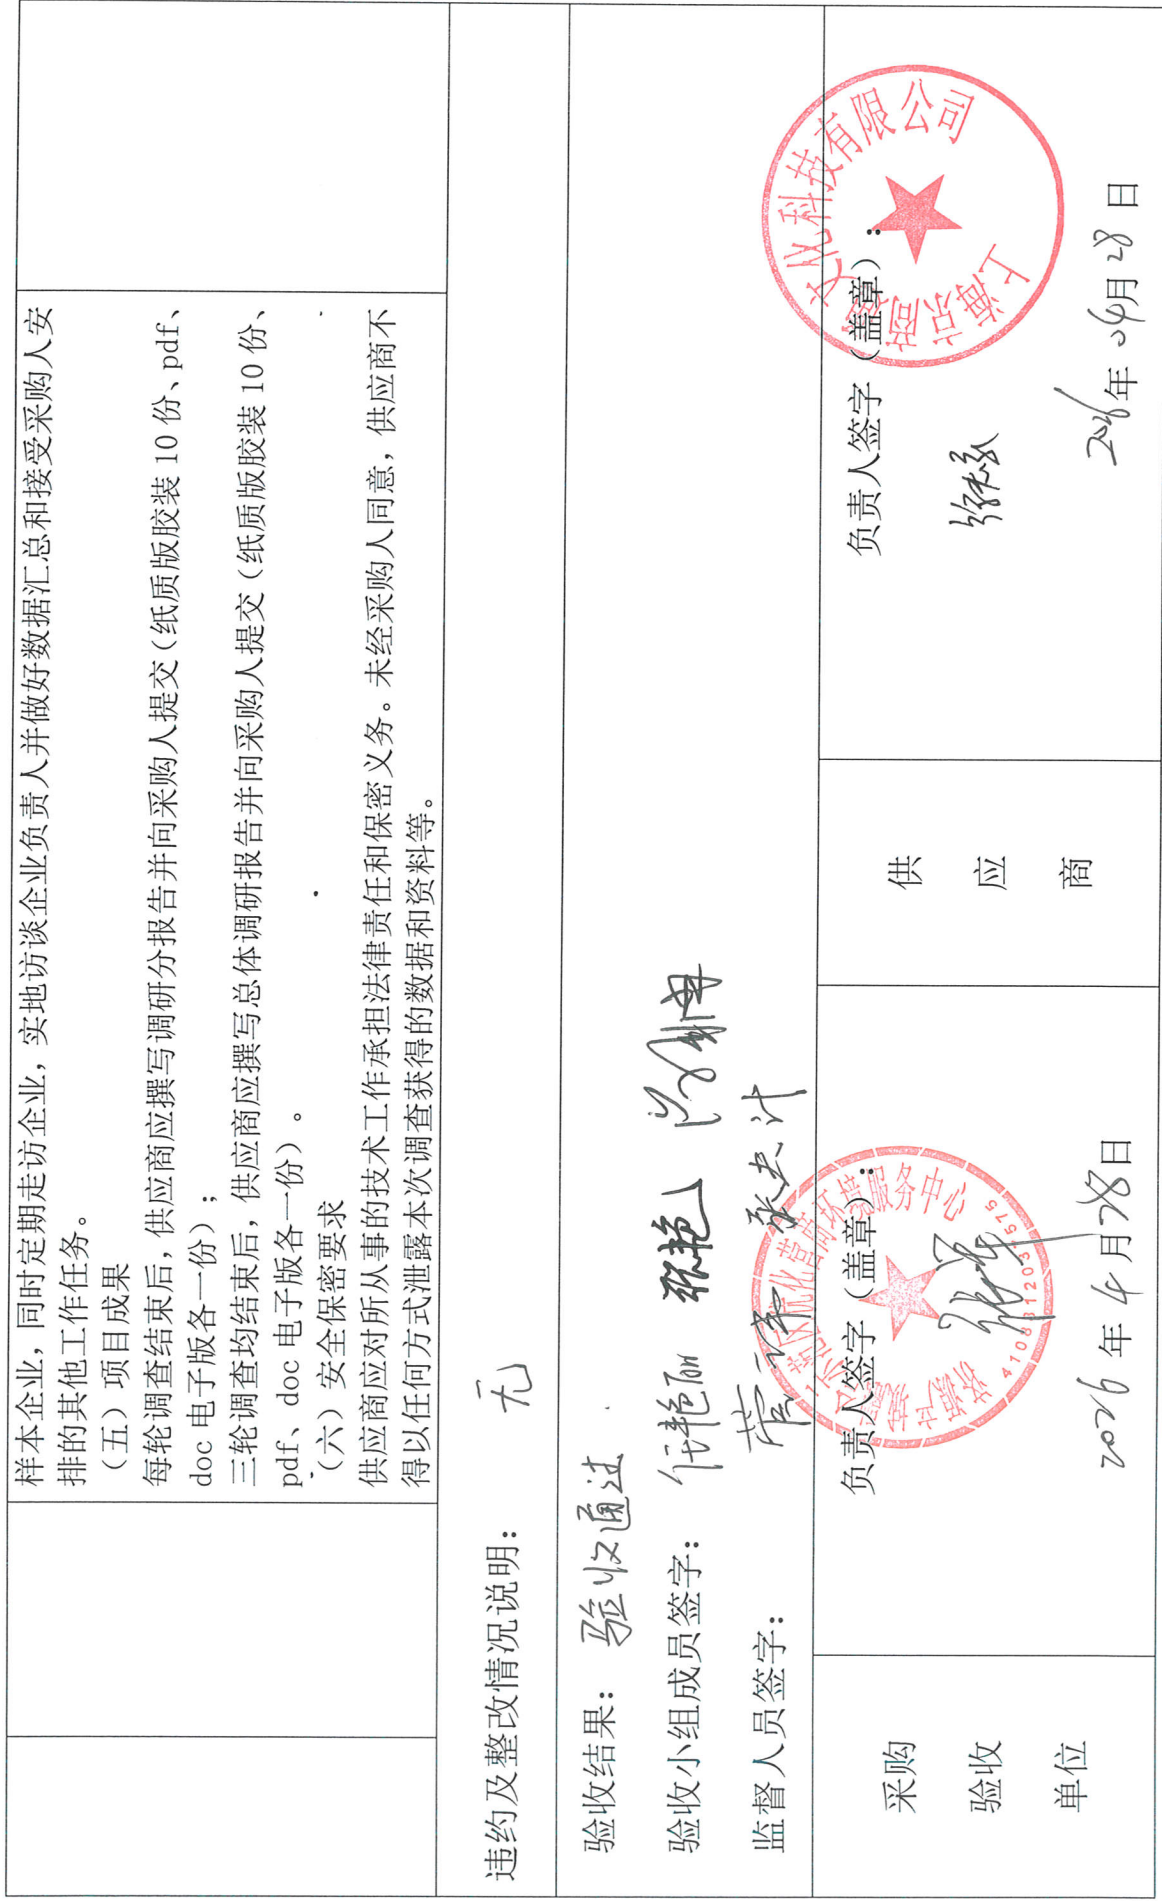 样本企业，同时定期走访企业，实地访谈企业负责人并做好数据汇总和接受采购人安
排的其他工作任务。
（五）项目成果
每轮调查结束后，供应商应撰写调研分报告并向采购人提交（纸质版胶装 10 份、pdf、
doc 电子版各一份）；
三轮调查均结束后，供应商应撰写总体调研报告并向采购人提交（纸质版胶装 10 份、
pdf、doc 电子版各一份）。
（六）安全保密要求
供应商应对所从事的技术工作承担法律责任和保密义务。未经采购人同意，供应商不
得以任何方式泄露本次调查获得的数据和资料等。
违约及整改情况说明： 无
验收结果： 验收通过
验收小组成员签字： 任艳丽
监督人员签字：
采购
验收
单位
负责人签字（盖章）：
优化营商环境服务中心
2026 年 4 月 28 日
供
应
商
负责人签字（盖章）：
文化科技有限公司
上海京商
2026 年 04 月 28 日